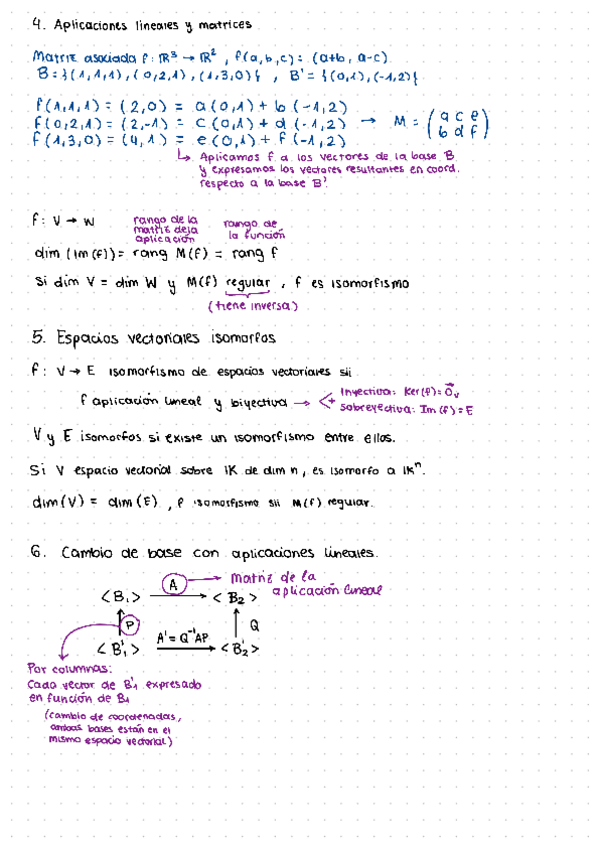 4. Aplicaciones lineales y matrices
Matriz asociada f: ℝ³ → ℝ², f(a,b,c) = (a+b, a-c)
B = {(1,1,1), (0,2,1), (1,3,0)}, B' = {(0,1),(-1,2)}
f(1,1,1) = (2,0) = a(0,1) + b(-1,2)
f(0,2,1) = (2,-1) = c(0,1) + d(-1,2) → M = (a c e
b d f)
f(1,3,0) = (4,1) = e(0,1) + f(-1,2)
↳ Aplicamos f a los vectores de la base B
y expresamos los vectores resultantes en coord.
respecto a la base B'.
f: V → W
rango de la
matriz de la
aplicación
rango de
la función
dim (Im(f)) = rang M(f) = rang f
Si dim V = dim W y M(f) regular, f es isomorfismo
(tiene inversa)
5. Espacios vectoriales isomorfos
f: V → E isomorfismo de espacios vectoriales sii
f aplicación lineal y biyectiva →
Inyectiva: Ker(f) = 0⃗ᵥ
+
sobreyectiva: Im(f) = E
V y E isomorfos si existe un isomorfismo entre ellos.
Si V espacio vectorial sobre IK de dim n, es isomorfo a IKⁿ.
dim(V) = dim(E), f isomorfismo sii M(f) regular.
6. Cambio de base con aplicaciones lineales.
A → Matriz de la
aplicación lineal
<B₁> → <B₂>
P
A' = Q⁻¹AP
Q
<B'₁> → <B'₂>
Por columnas:
Cada vector de B'₁ expresado
en función de B₁
(cambio de coordenadas,
ambas bases están en el
mismo espacio vectorial)